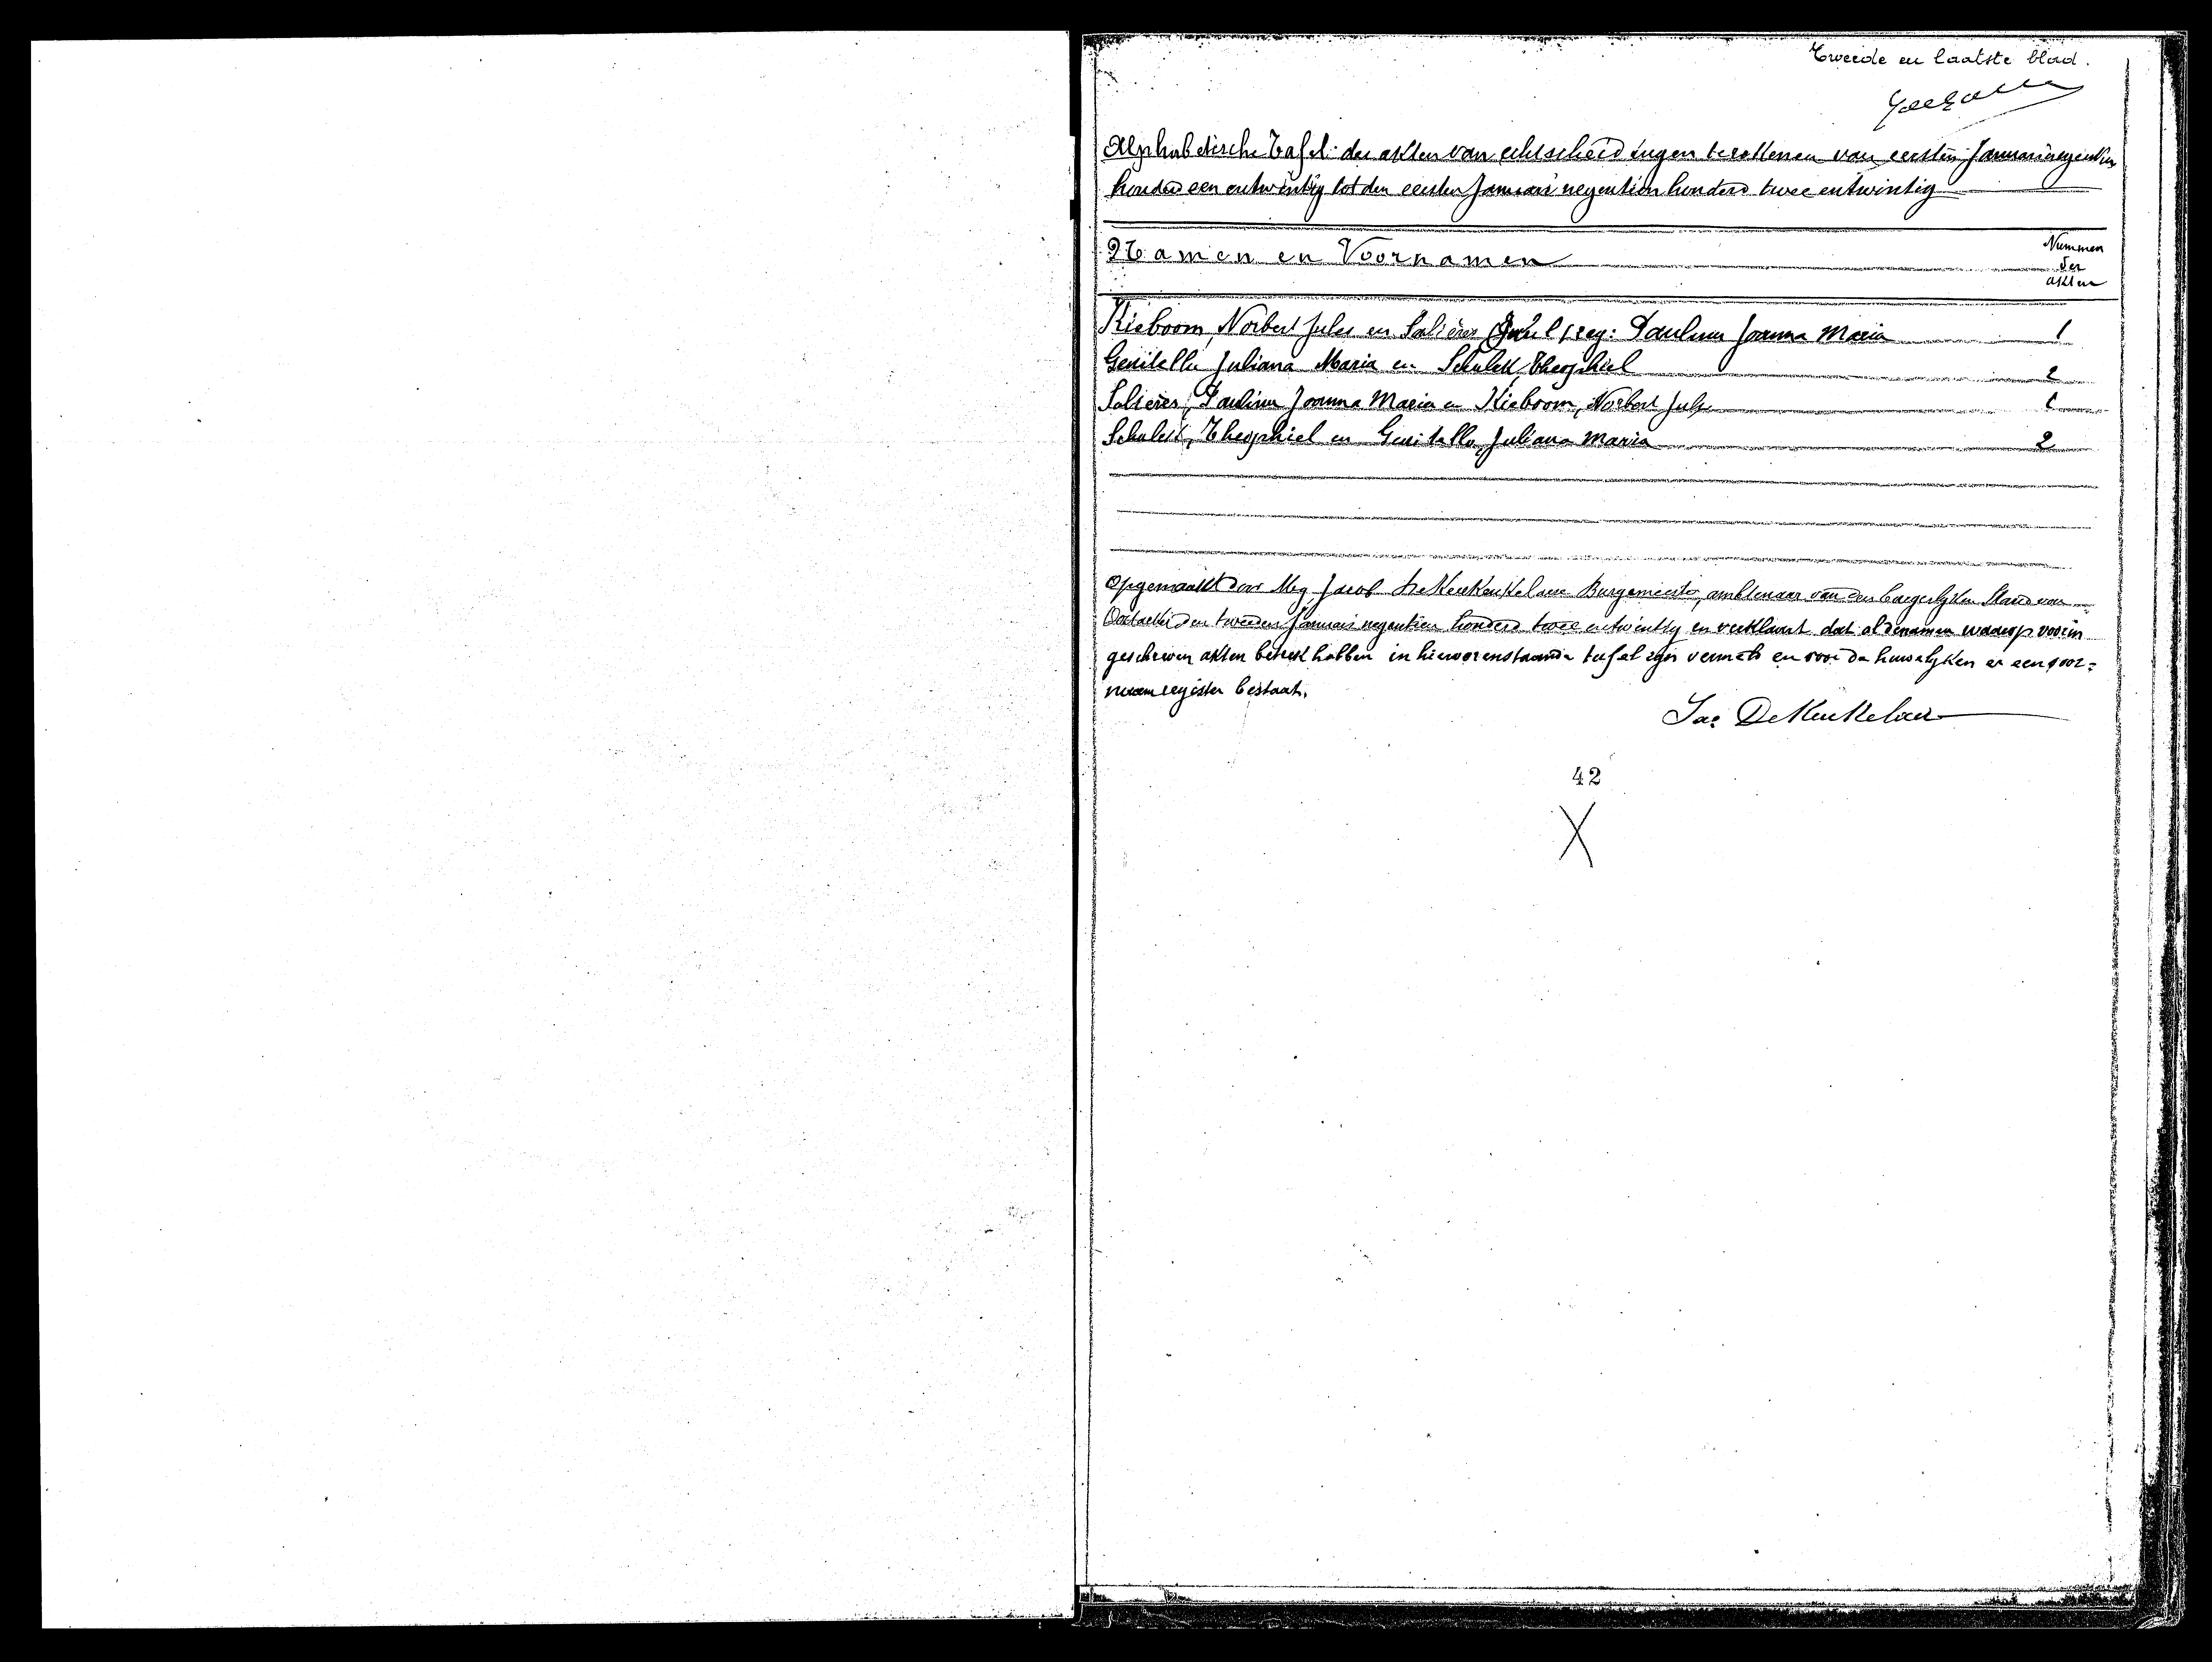 Tweede en laatste blad.
Alphabetische Tafel der akten van echtscheidingen te rekenen van eersten Januari negentien
honderd een en twintig tot den eersten Januari negentien honderd twee en twintig
Namen en Voornamen
Nummers
der
akten
Kieboom, Norbert Jules en Salières Paulina Joanna Maria 1
Genitello Juliana Maria en Schulek, Theophiel 2
Salières, Paulina Joanna Maria en Kieboom, Norbert Jules 1
Schulek, Theophiel en Genitello, Juliana Maria 2
Opgemaakt door Mij, Jacob De Keukelaere Burgemeester, ambtenaar van den burgerlijken Stand van
Oostacker den tweeden Januari negentien honderd twee en twintig en verklaart dat al de namen waarop voorin
geschreven akten betrek hebben in hiervorenstaande tafel zijn vermeld en voor de huwelijken er een voor=
naamregister bestaat.
Jac DeKeukelaere
42
X